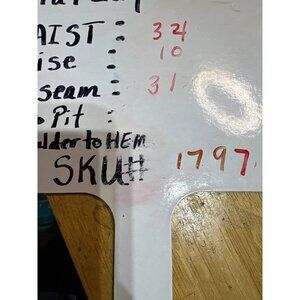 AIST: 34
ise : 10
seam: 31
Pit :
ulder to HEM
SKU# 1797